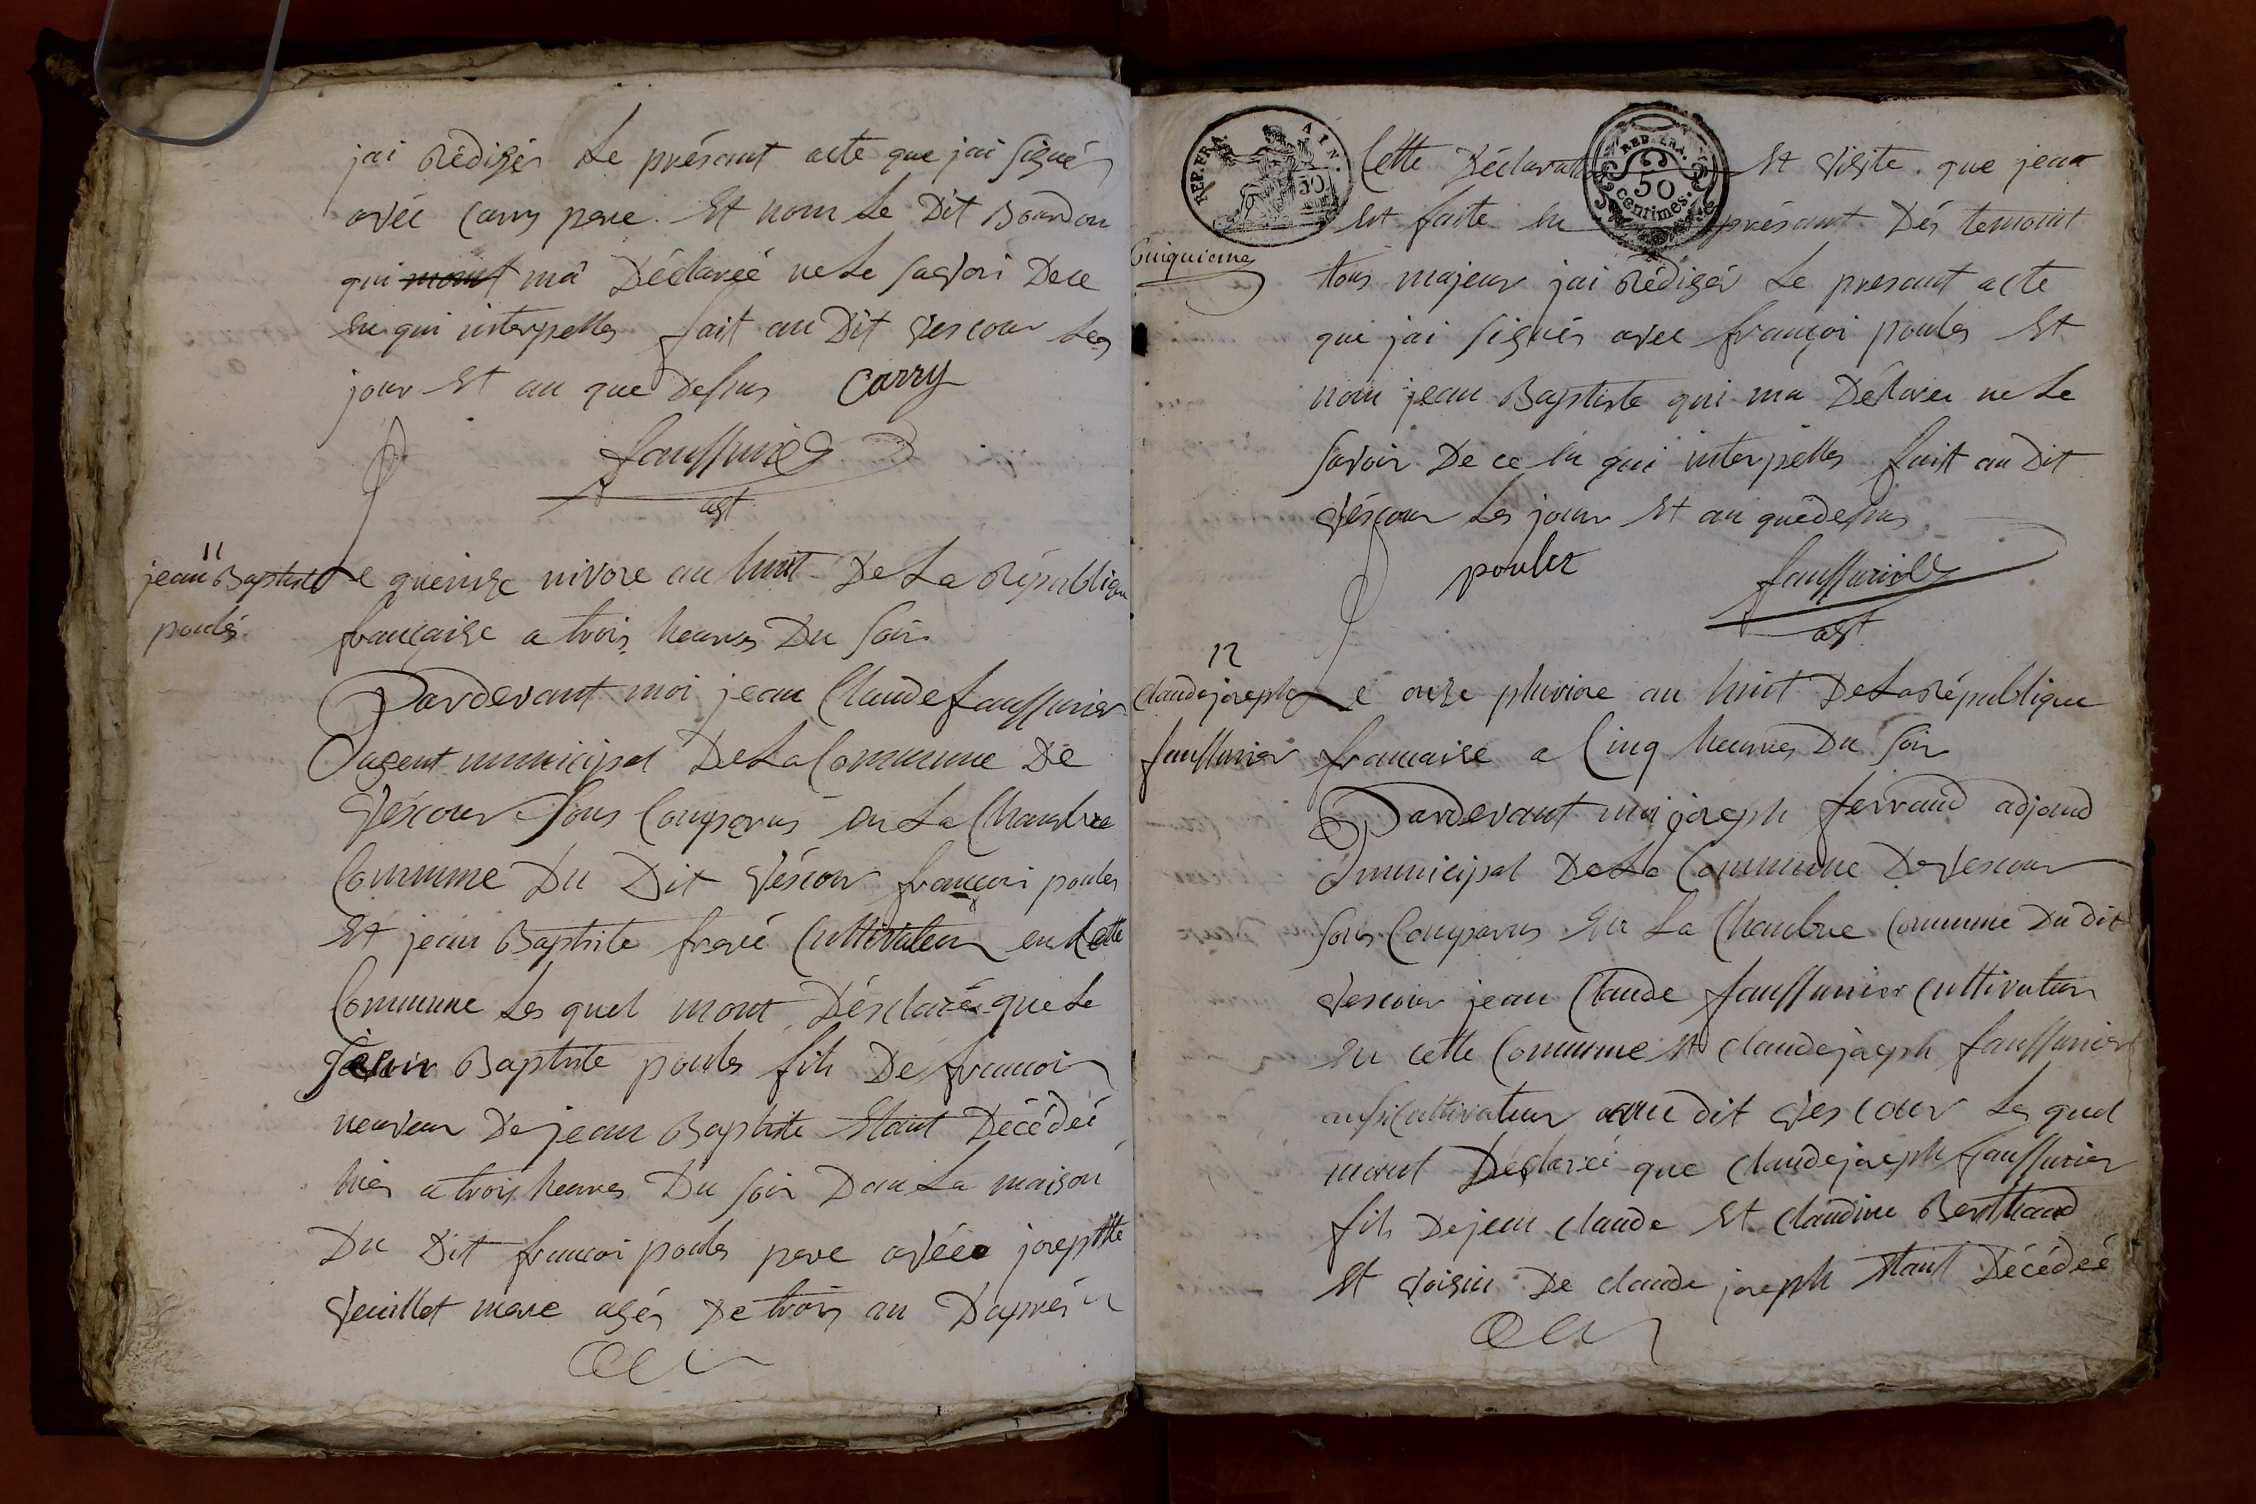 jai Rédigér Le présant acte que jai signér
avéc Carry pere Et nom Le Dit Bourdon
qui mont ma Déclareé ne Le sagvoir De ce
En qui interpelles fait au Dit vescour Les
jour Et an que Dessus Carry
faussurier
agt
11
jean Baptiste
poulés
Le queinze nivose an huit De La République
francaise a trois heures Du soir
Pardevant moi jean Claude faussurier
agent municipal De La Commune De
véscour sous Comparus En La Chambre
Commune Du Dit véscour françoi poules
Et jean Baptiste freré Cultivateur en Cette
Commune Les quel mont Désclaréé que Le
jean Baptiste poules fils De francois
neuveur De jean Baptiste Etant Décédéé
hier a trois heures Du soir Dan La maison
Du Dit francoi poules pere avééc josephte
veuillet mere agés De trois an Daprés
REP. FRA. AIN.
REP. FRA.
50
centimes.
Cette Déclarat Et visite que jean
Est faite En présant Dés temoint
Cinquieme
tous majeur jai Rédigér Le presant acte
que jai signés avec françoi poules Et
nom jean Baptiste qui ma Déclarée ne Le
savoir De ce En qui interpélles fait au Dit
véscour Les jour Et an que dessus
poulet faussurier
agt
12
Claude joseph
faussurier
Le onze pluviose an huit De La République
francaise a Cinq heures Du soir
Pardevant moi joseph ferrand adjoind
municipal De La Commune De vescour
sous Comparus En La Chambre Commune Du dit
vescour jean Claude faussurier Cultivateur
En cette Commune Et Claude joseph faussurier
ausi Cultivateur au dit vescour Les quel
mont Déclaréé que Claude joseph faussurier
fils De jean claude Et claudine Berthaud
Et voisin De claude joseph Etant Décédéé